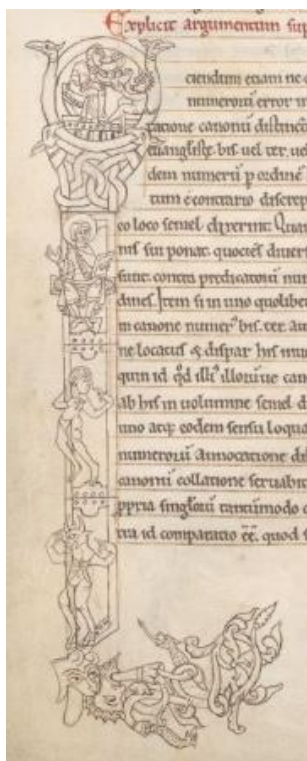 Explicit argumentum sup
ciendum etiam ne q
numerorū error in
ratione canonū distinct
euangliste bis uel ter uel
dem numerū p ordinē
tum e contrario discrep
eo loco semel dixerint. Quan
nis sui ponat. quociēs diuer
sunt. concta predicatorū num
dines. Item si in uno quolibet
in canone numer' bis. ter. au
ne locatus & dispar his num
quin id qd illi' illorū ue can
ab his in uolumine semel d
uno atq; eodem sensu loqua
numerorū annotatione de
canonū collatione seruabit
ppria singlorū tantūmodo
tra id comparatio ēē. quod